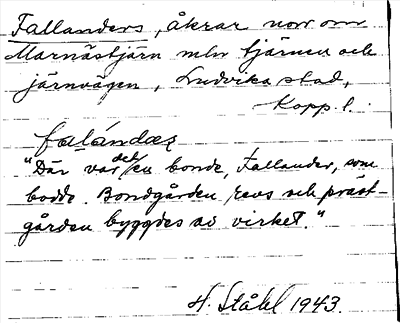 Fallanders, åkrar norr om
Marnästjärn mln tjärnen och
järnvägen, Ludvika stad,
Kopp. l.
falándæṣ
"Där var det en bonde, Fallander, som
bodde. Bondgården revs och präst-
gården byggdes av virket."
H. Ståhl 1943.